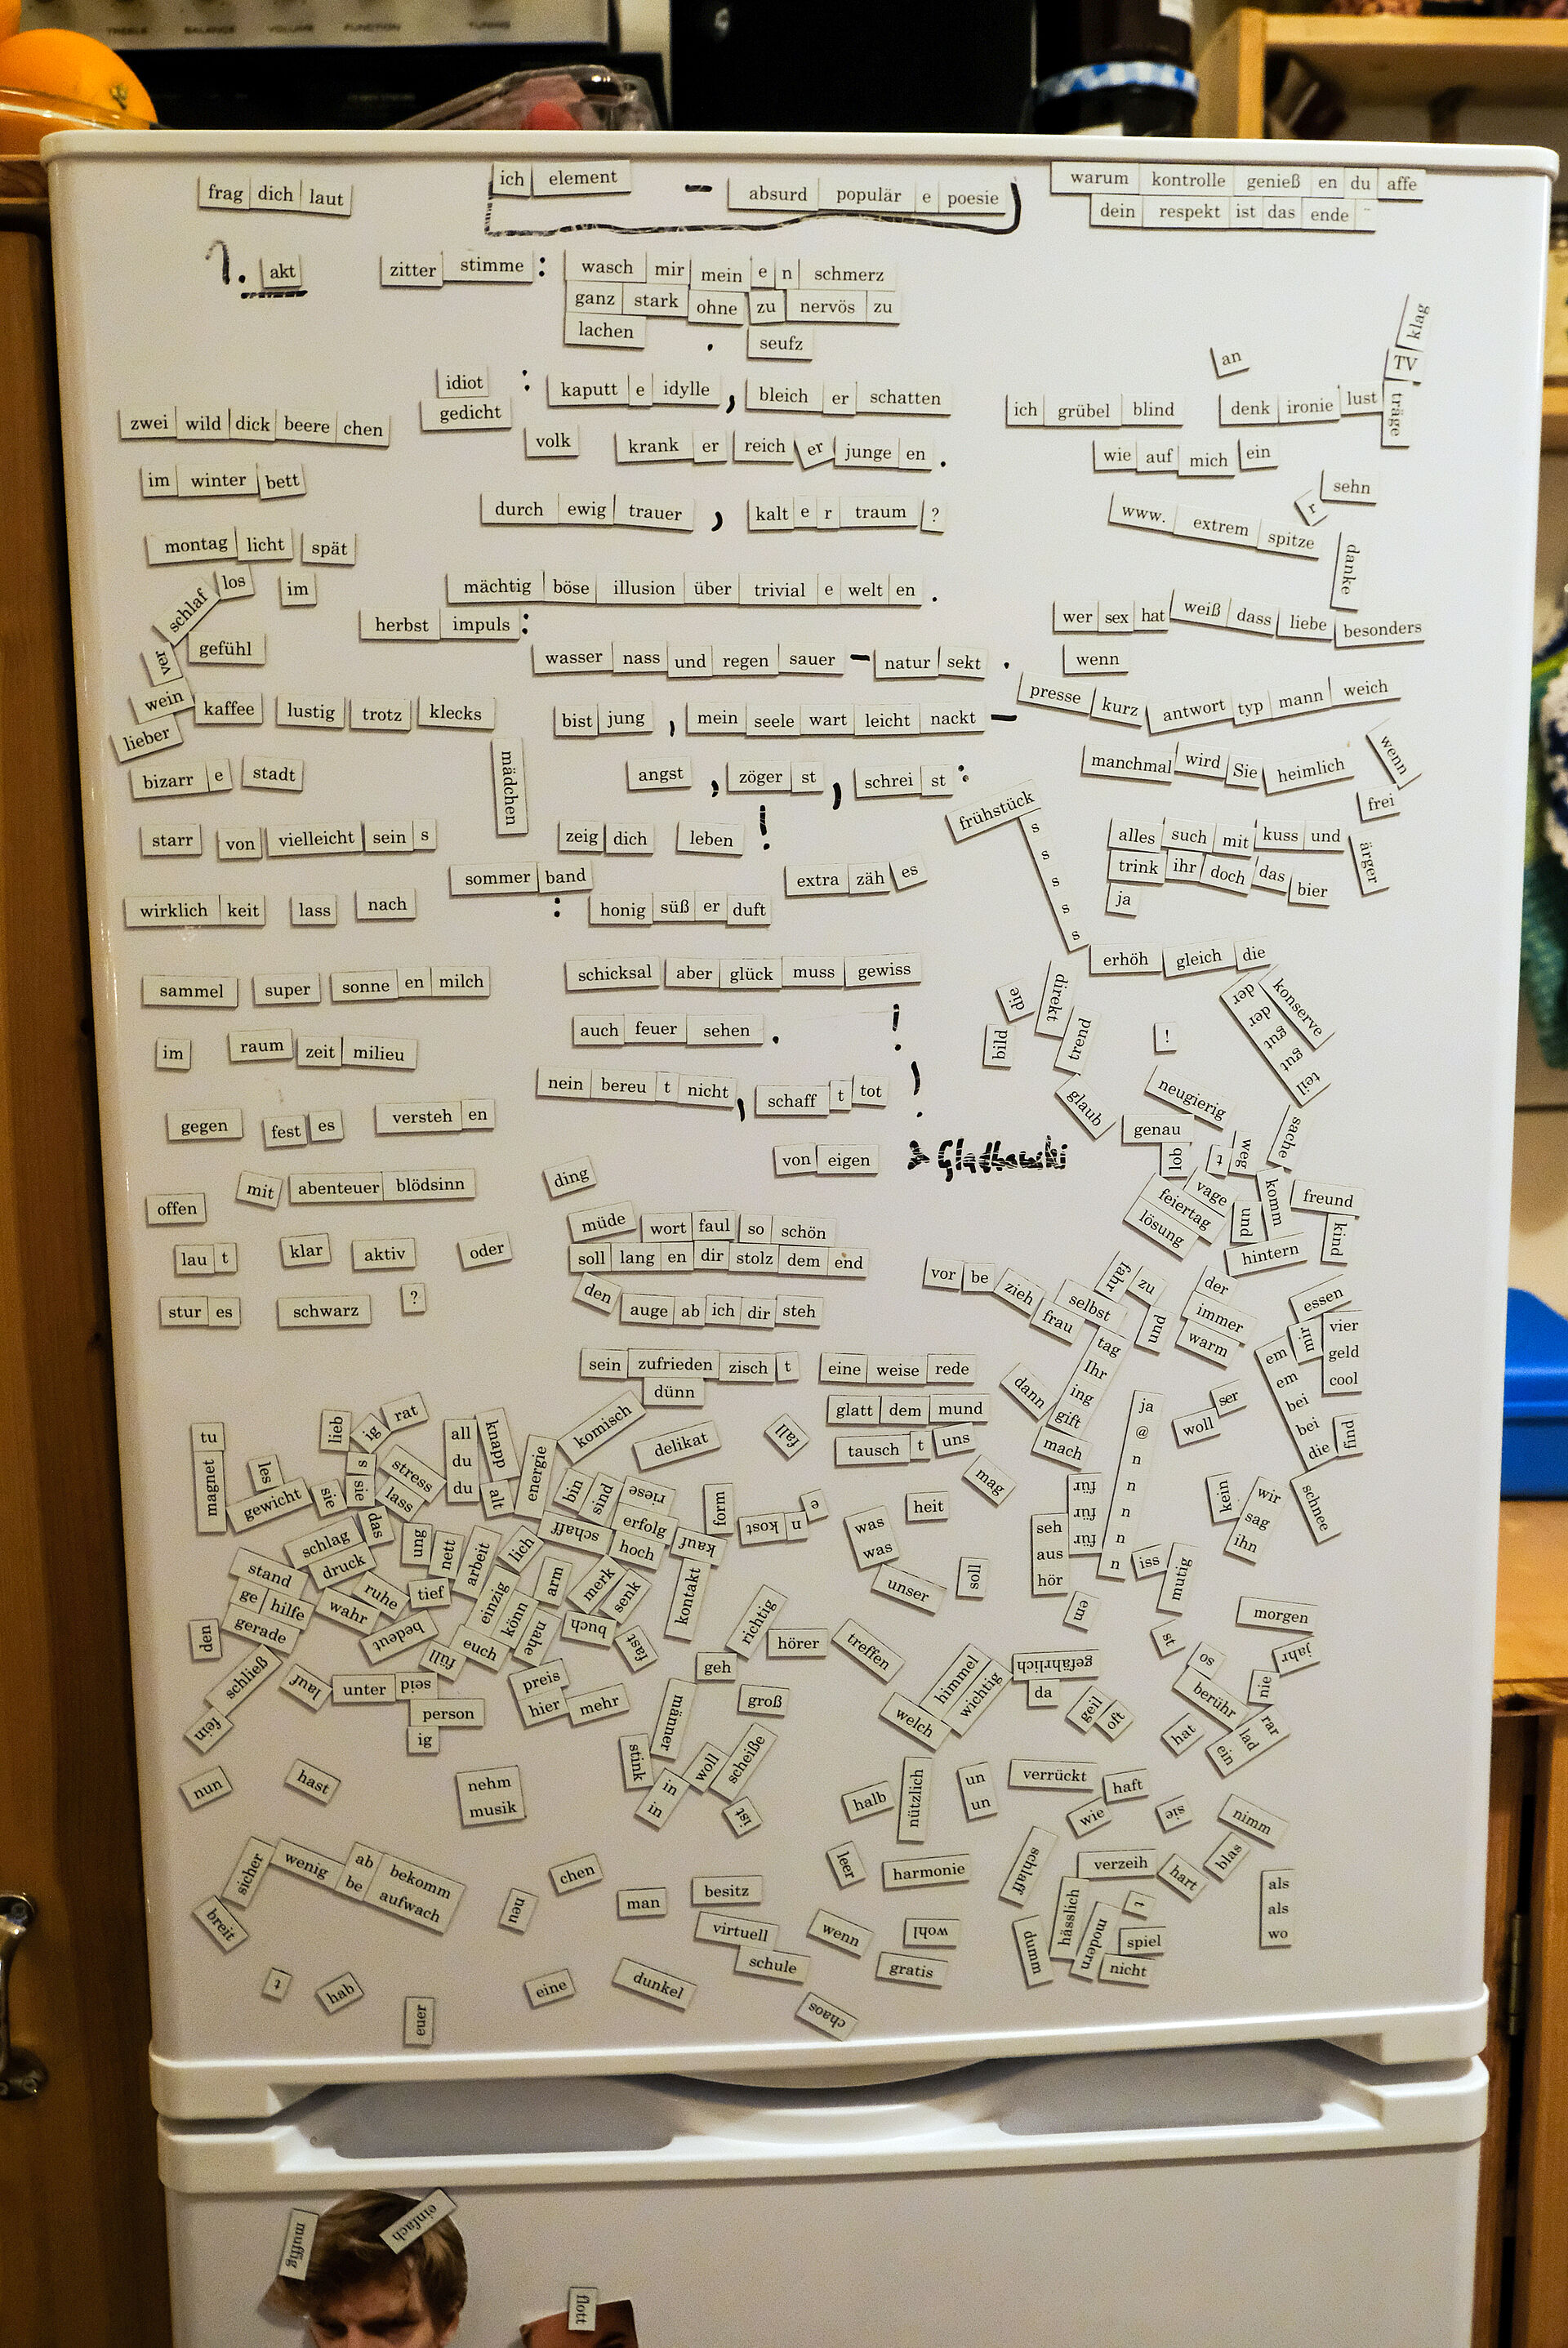 TREBLE BALANCE VOLUME FUNCTION TUNING
frag dich laut
ich element – absurd populär e poesie
warum kontrolle genieß en du affe
dein respekt ist das ende
1. akt
zitter stimme : wasch mir mein e n schmerz
ganz stark ohne zu nervös zu
lachen . seufz
idiot : kaputt e idylle , bleich er schatten
gedicht
volk krank er reich er junge en .
durch ewig trauer , kalt e r traum ?
mächtig böse illusion über trivial e welt en .
herbst impuls :
wasser nass und regen sauer – natur sekt .
bist jung , mein seele wart leicht nackt –
angst , zöger st , schrei st :
zeig dich leben !
sommer band : honig süß er duft
extra zäh es
schicksal aber glück muss gewiss
auch feuer sehen . !
nein bereu t nicht , schaff t tot !
von eigen
zwei wild dick beere chen
im winter bett
montag licht spät
schlaf los im
ver gefühl
wein kaffee lustig trotz klecks
lieber
mädchen
bizarr e stadt
starr von vielleicht sein s
wirklich keit lass nach
sammel super sonne en milch
im raum zeit milieu
gegen fest es versteh en
offen mit abenteuer blödsinn
lau t klar aktiv oder
stur es schwarz ?
ding
müde wort faul so schön
soll lang en dir stolz dem end
den auge ab ich dir steh
sein zufrieden zisch t
dünn
eine weise rede
glatt dem mund
tausch t uns
an klag
TV
ich grübel blind denk ironie lust träge
wie auf mich ein
sehn
r
www. extrem spitze danke
wer sex hat weiß dass liebe besonders
wenn
presse kurz antwort typ mann weich
manchmal wird Sie heimlich wenn
frei
alles such mit kuss und ärger
trink ihr doch das bier
ja
frühstück s s s s s
erhöh gleich die
konserve
der der gut gut teil
die direkt
bild trend !
glaub neugierig
genau sache
lob t weg
vage komm freund
feiertag und kind
lösung hintern
vor be zieh selbst fahr zu der
frau und immer
warm essen
tag Ihr ing gift
mir vier
geld
cool
em em bei bei die und
dann mach
ja @ n n n n n
woll ser
mag
für für für
seh
aus
hör
kein wir
sag
ihn schnee
iss mutig
em
morgen
st so jahr
berühr nie
hat ein lad rar
tu
magnet
lieb ig rat
all
du
du
knapp alt
energie
komisch delikat fall
les gewicht sie sie s
stress lass
das
schlag
druck
ung nett arbeit lich
bin sind riese
erfolg
schaff hoch kauf
form kost n e
was
was
heit
unser soll
stand
ge hilfe
gerade
wahr ruhe tief
einzig könn arm merk senk
kontakt
den bedeut füll euch nahe buch fast
richtig hörer treffen
schließ lauf unter seid
fein person
ig
preis
hier mehr
männer geh groß
himmel wichtig welch
gefährlich
da geil oft
nun hast
nehm
musik
stink in in woll scheiße ist
halb nützlich
un
un
verrückt haft
wie sie
nimm
blas
sicher wenig ab be bekomm
aufwach
breit
chen neu man
besitz
virtuell
schule
leer harmonie
wenn wohl
gratis
schlaff verzeih hart
hässlich t
dumm modern spiel
nicht
als
als
wo
t hab euer eine dunkel chaos
muffig einfach
flott